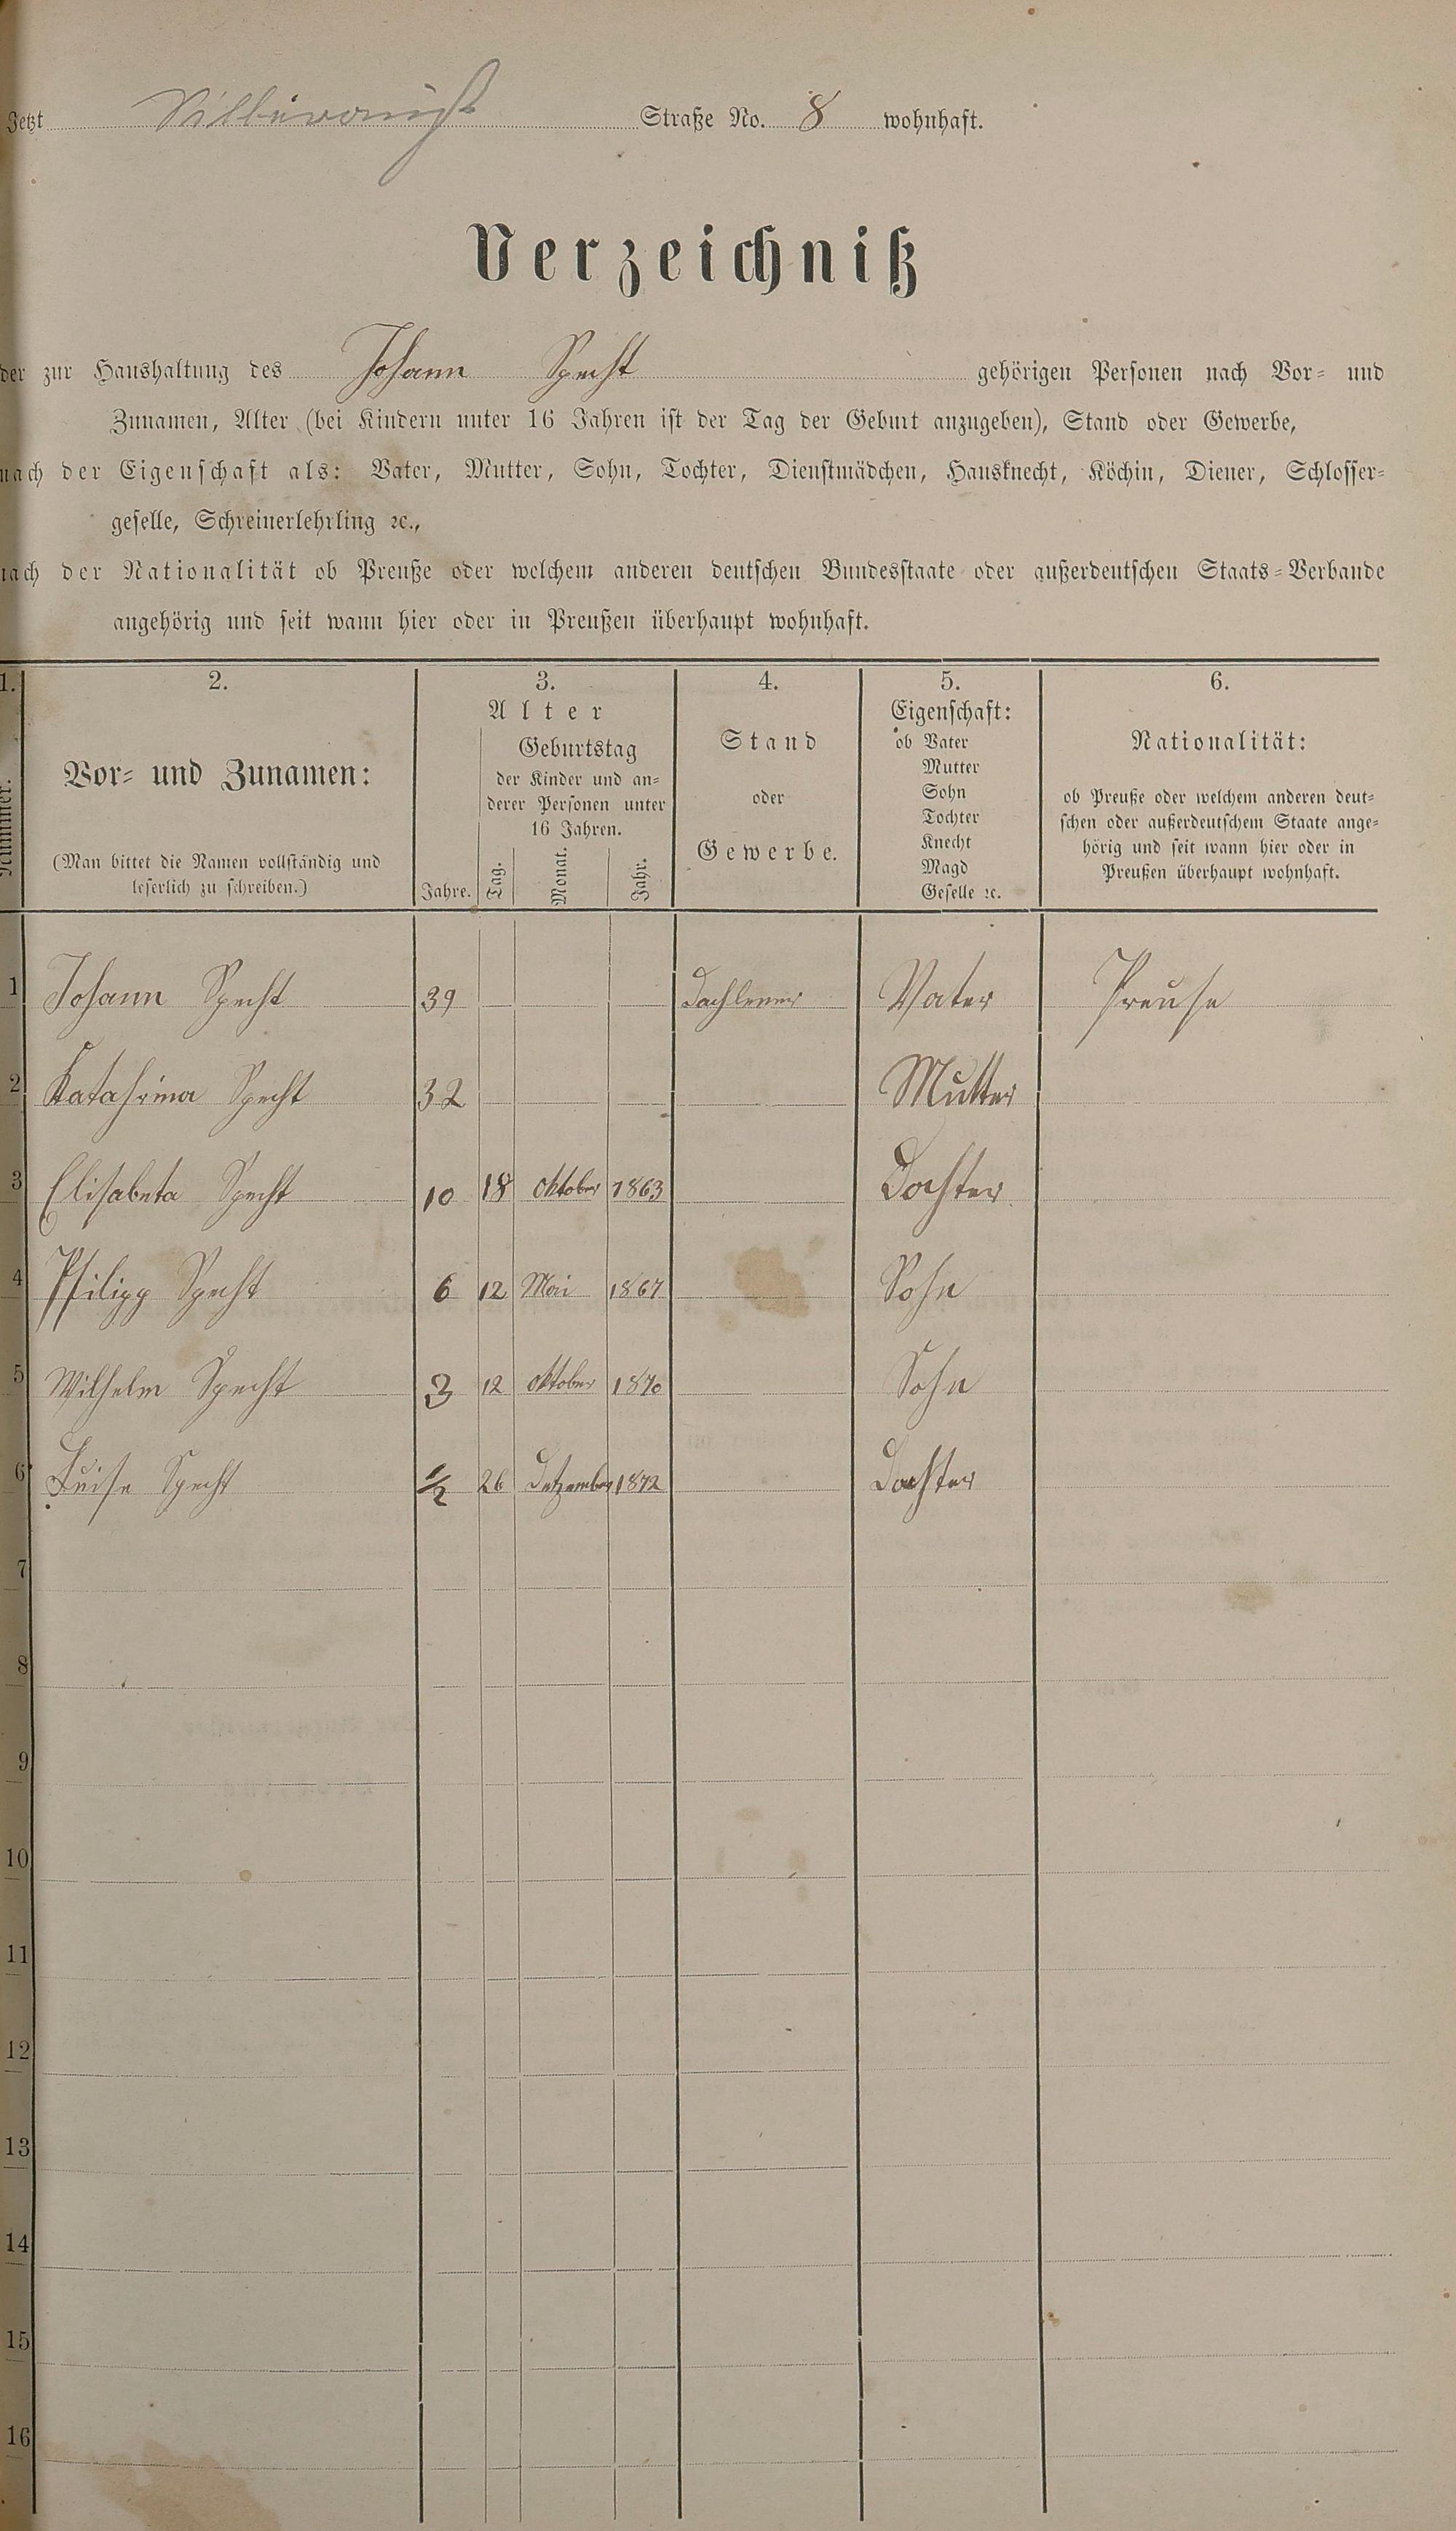 Jetzt Straße No. 8 wohnhaft.
Verzeichniß
der zur Haushaltung des Johann Specht gehörigen Personen nach Vor- und
Zunamen, Alter (bei Kindern unter 16 Jahren ist der Tag der Geburt anzugeben), Stand oder Gewerbe,
nach der Eigenschaft als: Vater, Mutter, Sohn, Tochter, Dienstmädchen, Hausknecht, Köchin, Diener, Schlosser-
geselle, Schreinerlehrling ꝛc.,
nach der Nationalität ob Preuße oder welchem anderen deutschen Bundesstaate oder außerdeutschen Staats-Verbande
angehörig und seit wann hier oder in Preußen überhaupt wohnhaft.
1. 2. 3. 4. 5. 6.
Nummer.
Vor- und Zunamen:
(Man bittet die Namen vollständig und
leserlich zu schreiben.)
Alter
Geburtstag
der Kinder und an-
derer Personen unter
16 Jahren.
Jahre. Tag. Monat. Jahr.
Stand
oder
Gewerbe.
Eigenschaft:
ob Vater
Mutter
Sohn
Tochter
Knecht
Magd
Geselle ꝛc.
Nationalität:
ob Preuße oder welchem anderen deut-
schen oder außerdeutschem Staate ange-
hörig und seit wann hier oder in
Preußen überhaupt wohnhaft.
1 Johann Specht 39 Vater Preuse
2 Katahrina Specht 32 Mutter
3 Elisabeta Specht 10 18 Oktober 1863 Dochter
4 Philipp Specht 6 12 Mai 1867 Sohn
5 Wilhelm Specht 3 12 Oktober 1870 Sohn
6 Luise Specht 1/2 26 Detzember 1872 Dochter
7
8
9
10
11
12
13
14
15
16